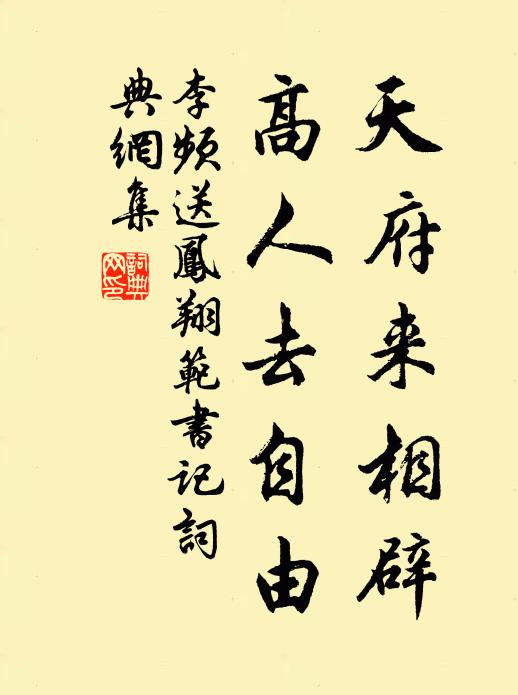 天府来相辟
高人去自由
李频送鳳翔範書記詞
典網集
詞典网印